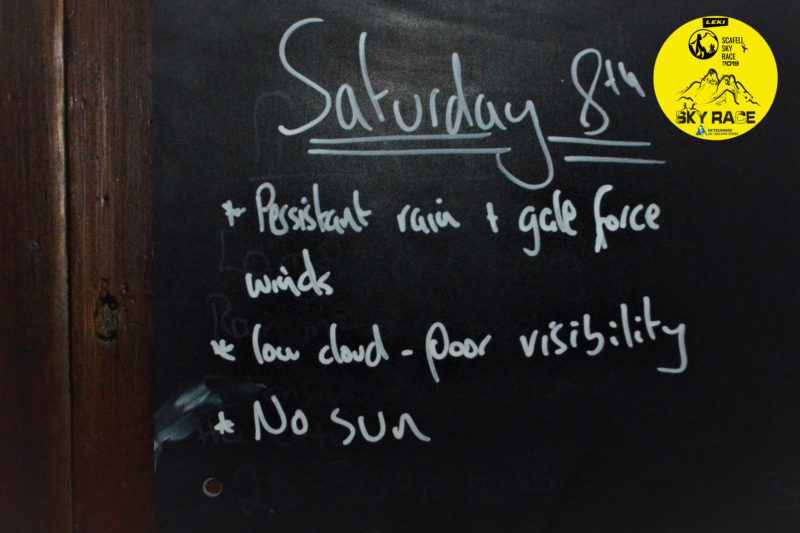 Saturday 8th
* Persistant rain + gale force
winds
* low cloud - poor visibility
* No sun
LEKI
SCAFELL
SKY
RACE
2019
SKY RACE
SKYRUNNER